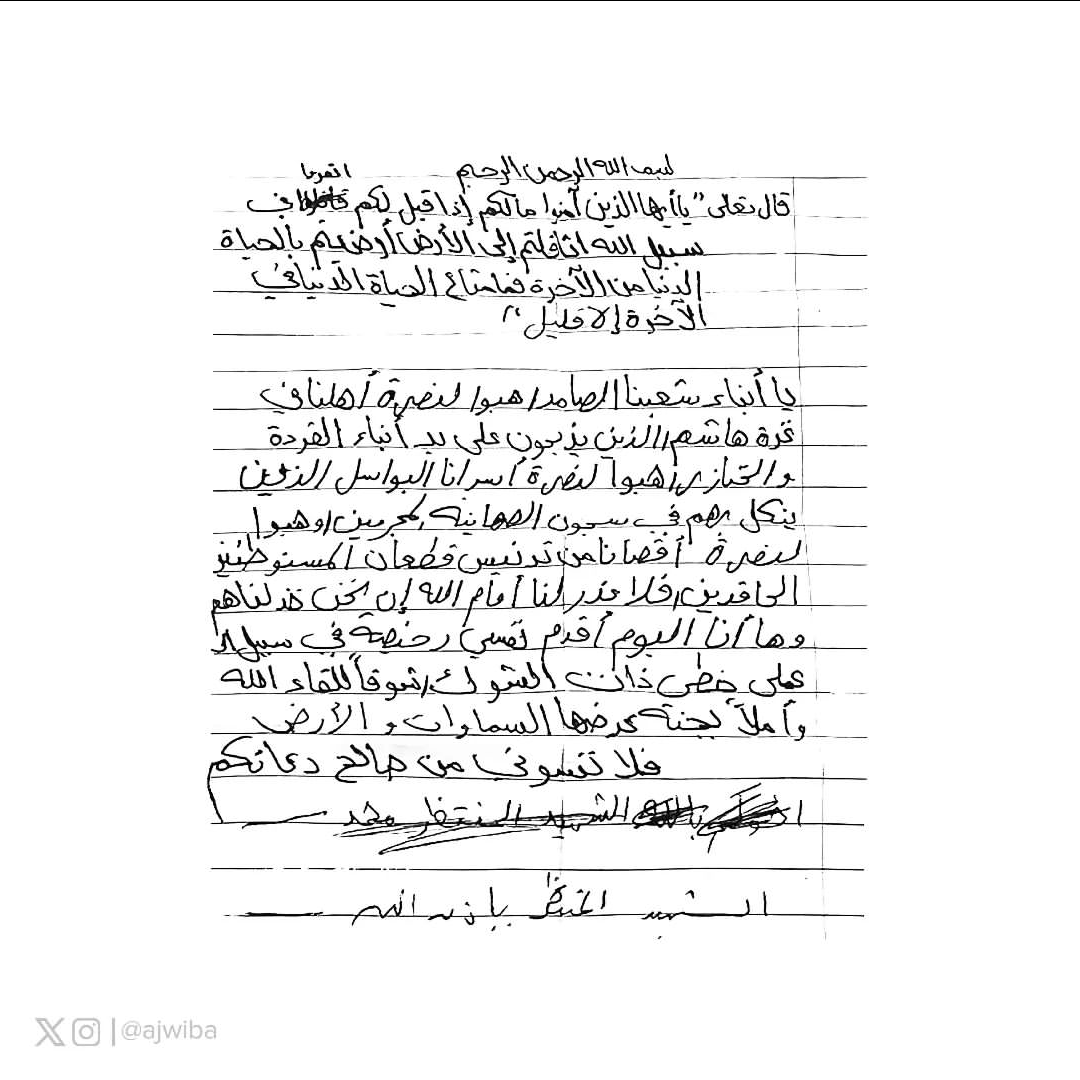 بسم الله الرحمن الرحيم
انفروا
قال تعالى "يا أيها الذين آمنوا مالكم إذا قيل لكم في
سبيل الله اثاقلتم إلى الأرض أرضيتم بالحياة
الدنيا من الآخرة فما متاع الحياة الدنيا في
الآخرة إلا قليل"
يا أبناء شعبنا الصامد هبوا لنصرة أهلنا في
غزة هاشم الذين يذبحون على يد أبناء القردة
والخنازير، هبوا لنصرة أسرانا البواسل الذين
ينكل بهم في سجون الصهاينة المجرمين، وهبوا
لنصرة أقصانا من تدنيس قطعان المستوطنين
الحاقدين، فلا عذر لنا أمام الله إن نحن خذلناهم
وها أنا اليوم أقدم نفسي رخيصة في سبيل الله
على خطى ذات الشوك، شوقاً للقاء الله
وأملاً بجنة عرضها السماوات والأرض
فلا تنسوني من صالح دعائكم
الشهيد المنتظر محمد
الشهيد المنتظر بإذن الله
@ajwiba